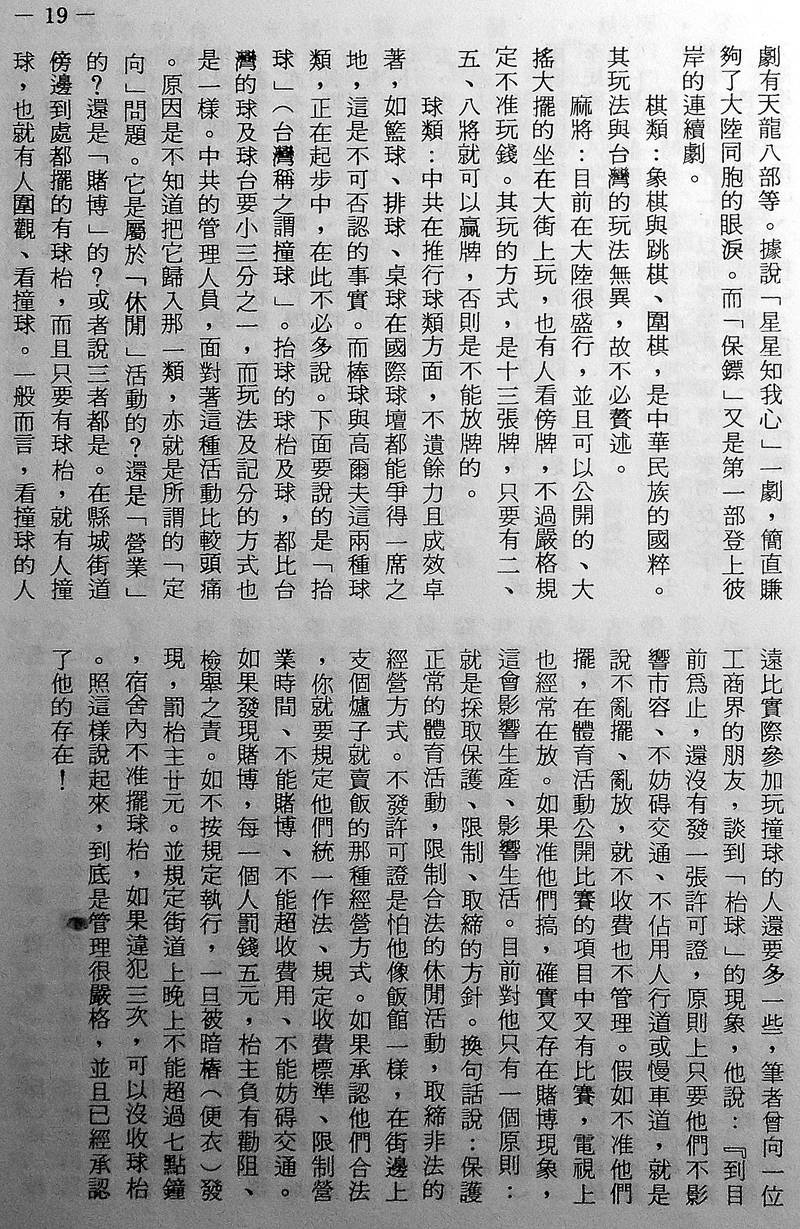 — 19 —
劇有天龍八部等。據說「星星知我心」一劇，簡直賺
夠了大陸同胞的眼淚。而「保鏢」又是第一部登上彼
岸的連續劇。
棋類：象棋與跳棋、圍棋，是中華民族的國粹。
其玩法與台灣的玩法無異，故不必贅述。
麻將：目前在大陸很盛行，並且可以公開的、大
搖大擺的坐在大街上玩，也有人看傍牌，不過嚴格規
定不准玩錢。其玩的方式，是十三張牌，只要有二、
五、八將就可以贏牌，否則是不能放牌的。
球類：中共在推行球類方面，不遺餘力且成效卓
著，如籃球、排球、桌球在國際球壇都能爭得一席之
地，這是不可否認的事實。而棒球與高爾夫這兩種球
類，正在起步中，在此不必多說。下面要說的是「抬
球」（台灣稱之謂撞球」。抬球的球枱及球，都比台
灣的球及球台要小三分之一，而玩法及記分的方式也
是一樣。中共的管理人員，面對著這種活動比較頭痛
。原因是不知道把它歸入那一類，亦就是所謂的「定
向」問題。它是屬於「休閒」活動的？還是「營業」
的？還是「賭博」的？或者說三者都是。在縣城街道
傍邊到處都擺的有球枱，而且只要有球枱，就有人撞
球，也就有人圍觀、看撞球。一般而言，看撞球的人
遠比實際參加玩撞球的人還要多一些，筆者曾向一位
工商界的朋友，談到「枱球」的現象，他說：『到目
前爲止，還沒有發一張許可證，原則上只要他們不影
響市容、不妨碍交通、不佔用人行道或慢車道，就是
說不亂擺、亂放，就不收費也不管理。假如不准他們
擺，在體育活動公開比賽的項目中又有比賽，電視上
也經常在放。如果准他們搞，確實又存在賭博現象，
這會影響生產、影響生活。目前對他只有一個原則：
就是採取保護、限制、取締的方針。換句話說：保護
正常的體育活動，限制合法的休閒活動，取締非法的
經營方式。不發許可證是怕他像飯館一樣，在街邊上
支個爐子就賣飯的那種經營方式。如果承認他們合法
，你就要規定他們統一作法、規定收費標準、限制營
業時間、不能賭博、不能超收費用、不能妨碍交通。
如果發現賭博，每一個人罰錢五元，枱主負有勸阻、
檢舉之責。如不按規定執行，一旦被暗樁（便衣）發
現，罰枱主廿元。並規定街道上晚上不能超過七點鐘
，宿舍內不准擺球枱，如果違犯三次，可以沒收球枱
。照這樣說起來，到底是管理很嚴格，並且已經承認
了他的存在！